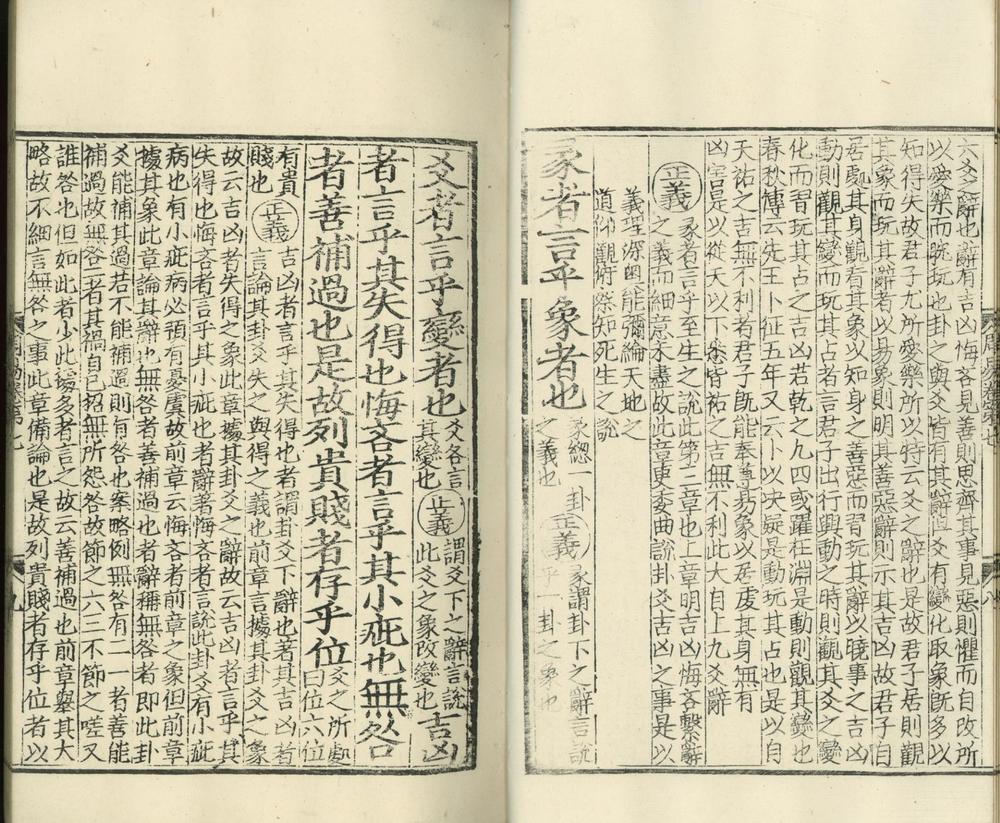 六爻之辭也辭有吉凶悔吝見善則思齊其事見惡則懼而自改所
以愛樂而翫玩也卦之與爻皆有其辭但爻有變化取象旣多以
知得失故君子尤所愛樂所以特云爻之辭也是故君子居則觀
其象而玩其辭者以易象則明其善惡辭則示其吉凶故君子自
居處其身觀看其象以知身之善惡而習玩其辭以曉事之吉凶
動則觀其變而玩其占者言君子出行興動之時則觀其爻之變
化而習玩其占之吉凶若乾之九四或躍在淵是動則觀其變也
春秋傳云先王卜征五年又云卜以决疑是動玩其占也是以自
天祐之吉無不利者君子旣能奉尊易象以居處其身無有
凶害是以從天以下悉皆祐之吉無不利此大自上九爻辭
正義
彖者言乎至生之說此第三章也上章明吉凶悔吝繫辭
之義而細意未盡故此章更委曲說卦爻吉凶之事是以
義理深奧能彌綸天地之
道仰觀俯察知死生之說
彖者言乎象者也
彖總一卦
之義也
正義
彖謂卦下之辭言說
乎一卦之象也
爻者言乎變者也
爻各言
其變也
正義
謂爻下之辭言說
此爻之象改變也
吉凶
者言乎其失得也悔吝者言乎其小疵也無咎
者善補過也是故列貴賤者存乎位
爻之所處
曰位六位
有貴
賤也
正義
吉凶者言乎其失得也者謂卦爻下辭也著其吉凶者
言論其卦爻失之與得之義也前章言據其卦爻之象
故云吉凶者失得之象此章據其卦爻之辭故云吉凶者言乎其
失得也悔吝者言乎其小疵也者辭著悔吝者言說此卦爻有小疵
病也有小疵病必預有憂虞故前章云悔吝者前章之象但前章
據其象此章論其辭也無咎者善補過也者辭稱無咎者即此卦
爻能補其過若不能補過則有咎也案略例無咎有二一者善能
補過故無咎二者其禍自已招無所怨咎故節之六三不節之嗟又
誰咎也但如此者少此據多者言之故云善補過也前章舉其大
略故不細言無咎之事此章備論也是故列貴賤者存乎位者以